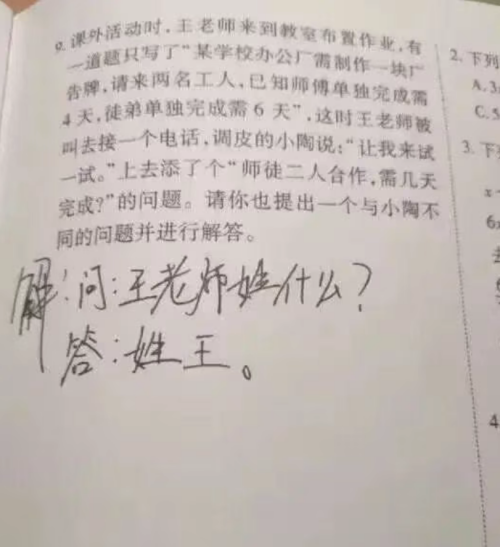 9. 课外活动时，王老师来到教室布置作业，有
一道题只写了“某学校办公厂需制作一块广
告牌，请来两名工人，已知师傅单独完成需
4天，徒弟单独完成需6天”，这时王老师被
叫去接一个电话，调皮的小陶说：“让我来试
一试。”上去添了个“师徒二人合作，需几天
完成？”的问题。请你也提出一个与小陶不
同的问题并进行解答。
解：问：王老师姓什么？
答：姓王。
2. 下列
A. 3
C. 5
3. 下
x
6
4